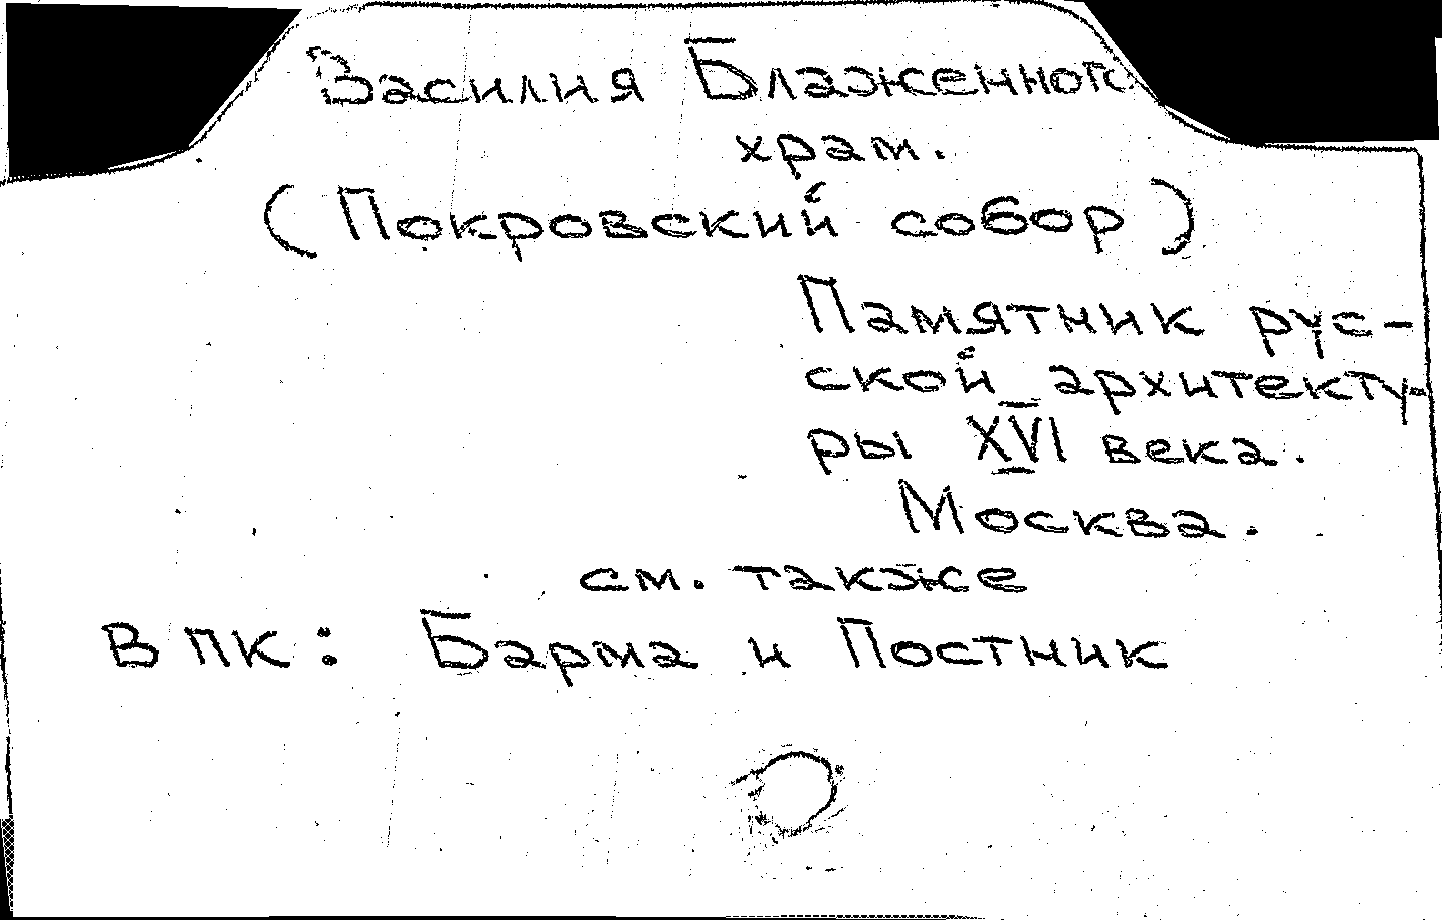 Василия Блаженного
храм.
(Покровский собор)
Памятник рус-
ской архитекту-
ры XVI века.
Москва.
см. также
В ПК: Барма и Постник